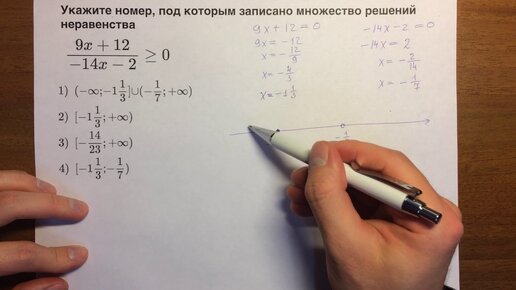 Укажите номер, под которым записано множество решений
неравенства
(9x + 12)/(−14x − 2) ≥ 0
1) (−∞;−1 1/3]∪(−1/7;+∞)
2) [−1 1/3;+∞)
3) [−14/23;+∞)
4) [−1 1/3;−1/7)
9x + 12 = 0
9x = −12
x = −12/9
x = −4/3
x = −1 1/3
−14x − 2 = 0
−14x = 2
x = −2/14
x = −1/7